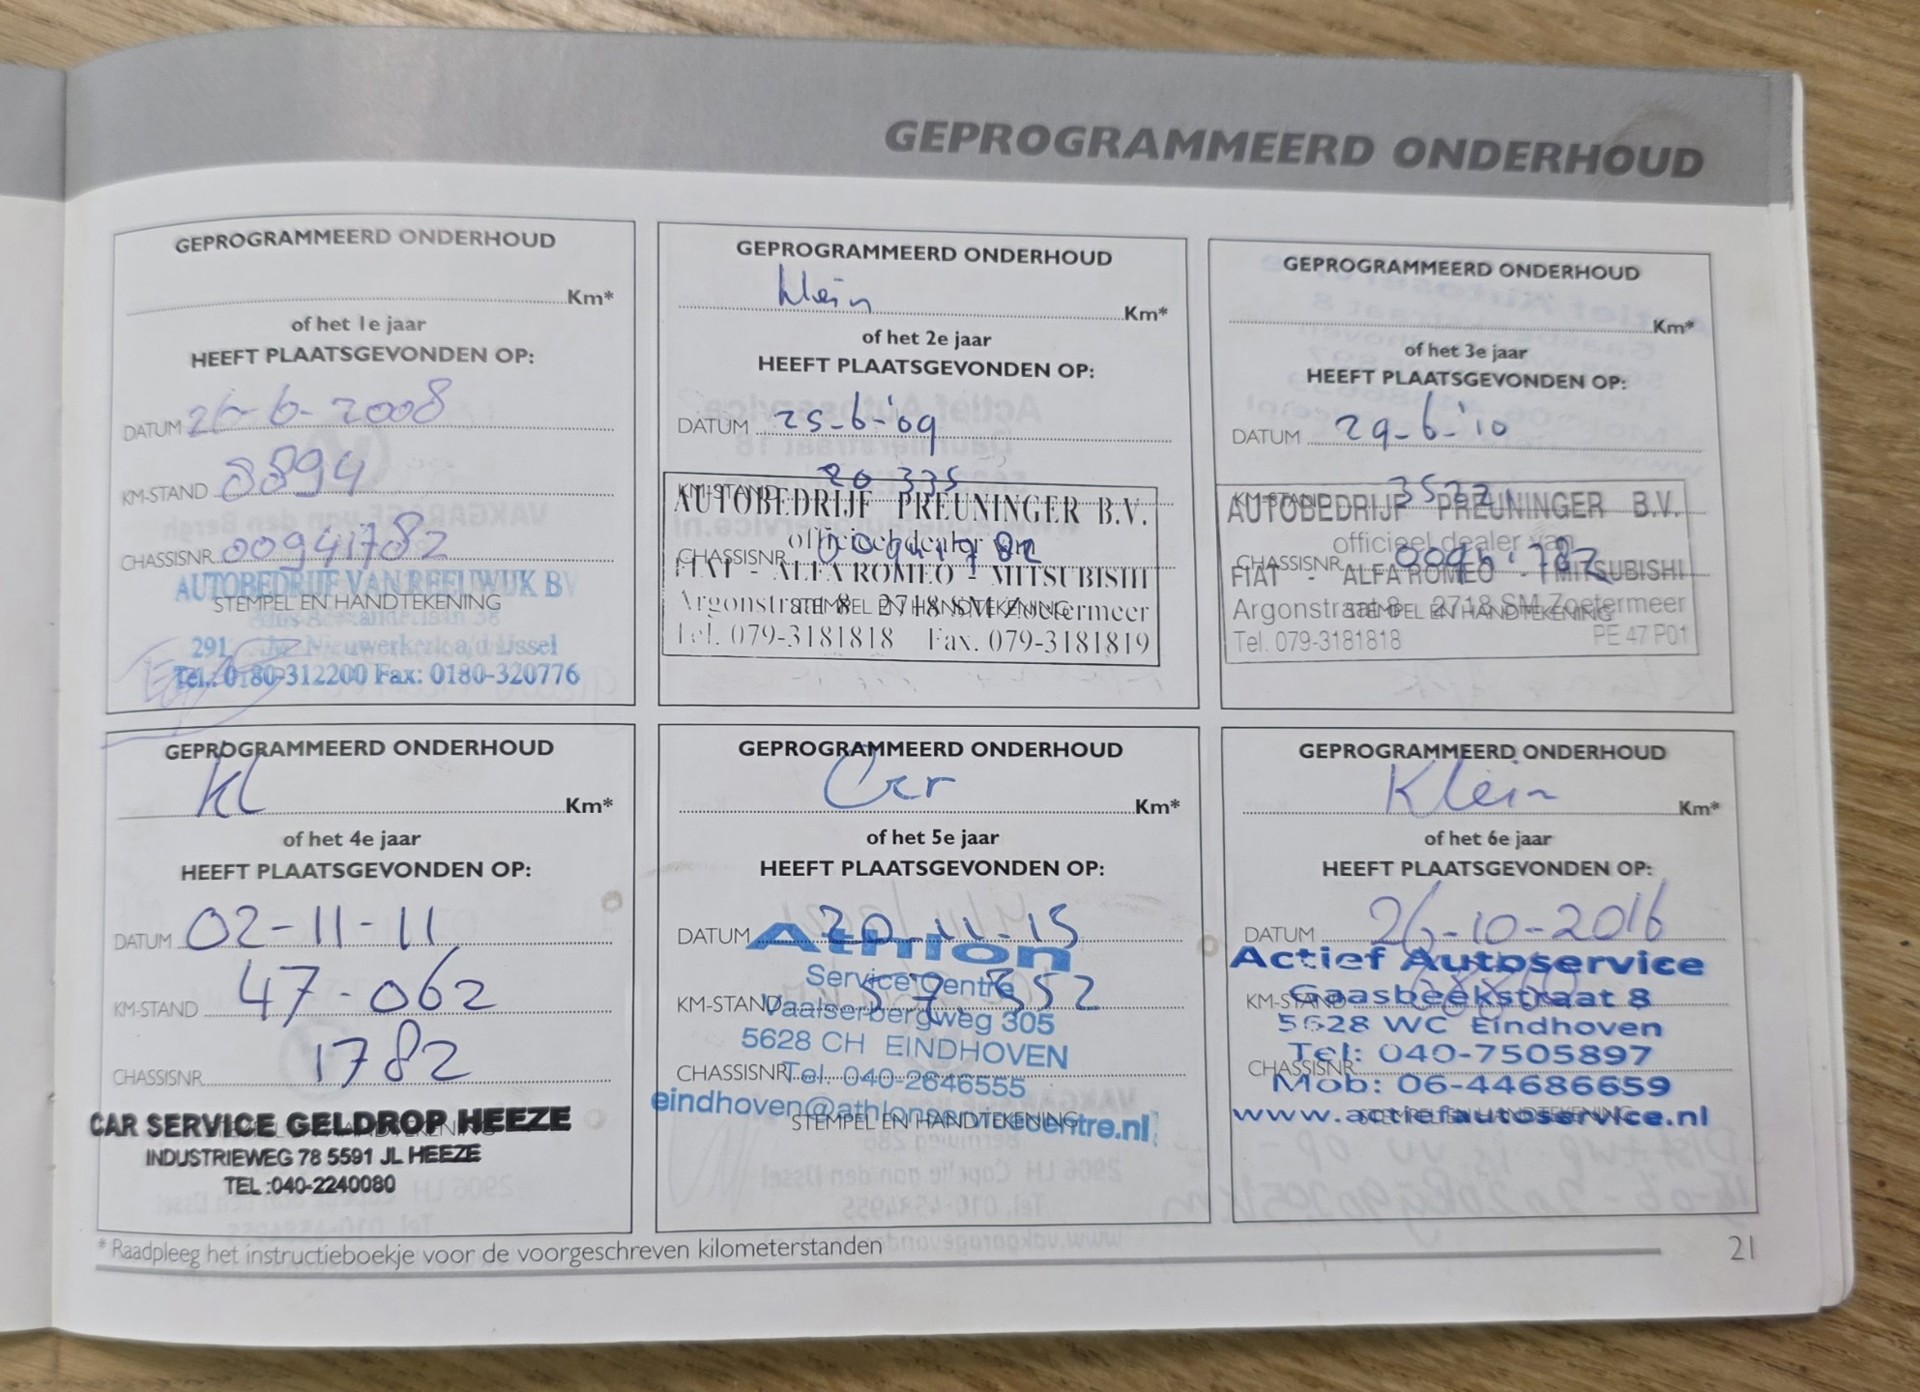 GEPROGRAMMEERD ONDERHOUD
GEPROGRAMMEERD ONDERHOUD
Km*
of het 1e jaar
HEEFT PLAATSGEVONDEN OP:
DATUM 26-6-2008
KM-STAND 8894
CHASSISNR. 00941782
AUTOBEDRIJF VAN REEUWIJK BV
STEMPEL EN HANDTEKENING
291 Nieuwerkerk a/d IJssel
Tel.: 0180-312200 Fax: 0180-320776
GEPROGRAMMEERD ONDERHOUD
klein Km*
of het 2e jaar
HEEFT PLAATSGEVONDEN OP:
DATUM 25-6-'09
KM-STAND 20 335
AUTOBEDRIJF PREUNINGER B.V.
officieel dealer van
CHASSISNR. 00941782
FIAT - ALFA ROMEO - MITSUBISHI
Argonstraat 8 2718 SM Zoetermeer
STEMPEL EN HANDTEKENING
Tel. 079-3181818 Fax. 079-3181819
GEPROGRAMMEERD ONDERHOUD
Km*
of het 3e jaar
HEEFT PLAATSGEVONDEN OP:
DATUM 29-6-'10
KM-STAND
AUTOBEDRIJF PREUNINGER B.V.
officieel dealer van
CHASSISNR.
FIAT - ALFA ROMEO - MITSUBISHI
Argonstraat 8 2718 SM Zoetermeer
STEMPEL EN HANDTEKENING
Tel. 079-3181818 PE 47 P01
GEPROGRAMMEERD ONDERHOUD
Kl Km*
of het 4e jaar
HEEFT PLAATSGEVONDEN OP:
DATUM 02-11-11
KM-STAND 47-062
CHASSISNR. 1782
CAR SERVICE GELDROP HEEZE
STEMPEL EN HANDTEKENING
INDUSTRIEWEG 78 5591 JL HEEZE
TEL.:040-2240080
GEPROGRAMMEERD ONDERHOUD
Km*
of het 5e jaar
HEEFT PLAATSGEVONDEN OP:
DATUM 20-11-15
Athlon
Service Centre
KM-STAND 57 352
Vaalserbergweg 305
5628 CH EINDHOVEN
CHASSISNR.
Tel. 040-2646555
STEMPEL EN HANDTEKENING
GEPROGRAMMEERD ONDERHOUD
Klein Km*
of het 6e jaar
HEEFT PLAATSGEVONDEN OP:
DATUM 26-10-2016
Actief Autoservice
KM-STAND
Gaasbeekstraat 8
5628 WC Eindhoven
Tel: 040-7505897
CHASSISNR.
Mob: 06-44686659
www.actiefautoservice.nl
STEMPEL EN HANDTEKENING
* Raadpleeg het instructieboekje voor de voorgeschreven kilometerstanden
21